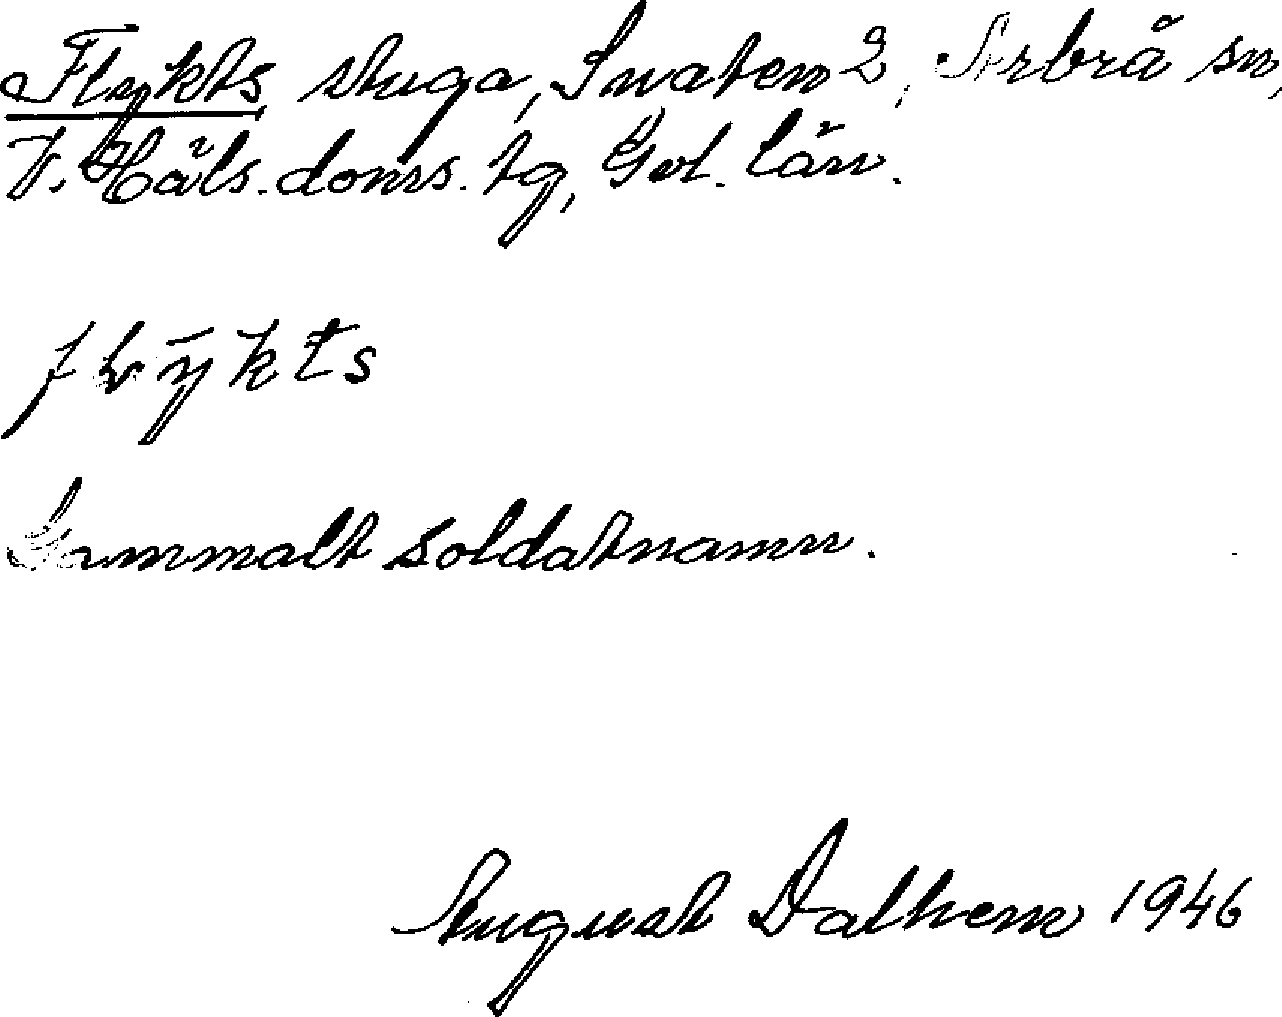 Flykts stuga, Svaten 2, Arbrå sn,
V. Häls. doms. tg, Gvl. län.
flykts
Gammalt soldatnamn.
August Dalhem 1946